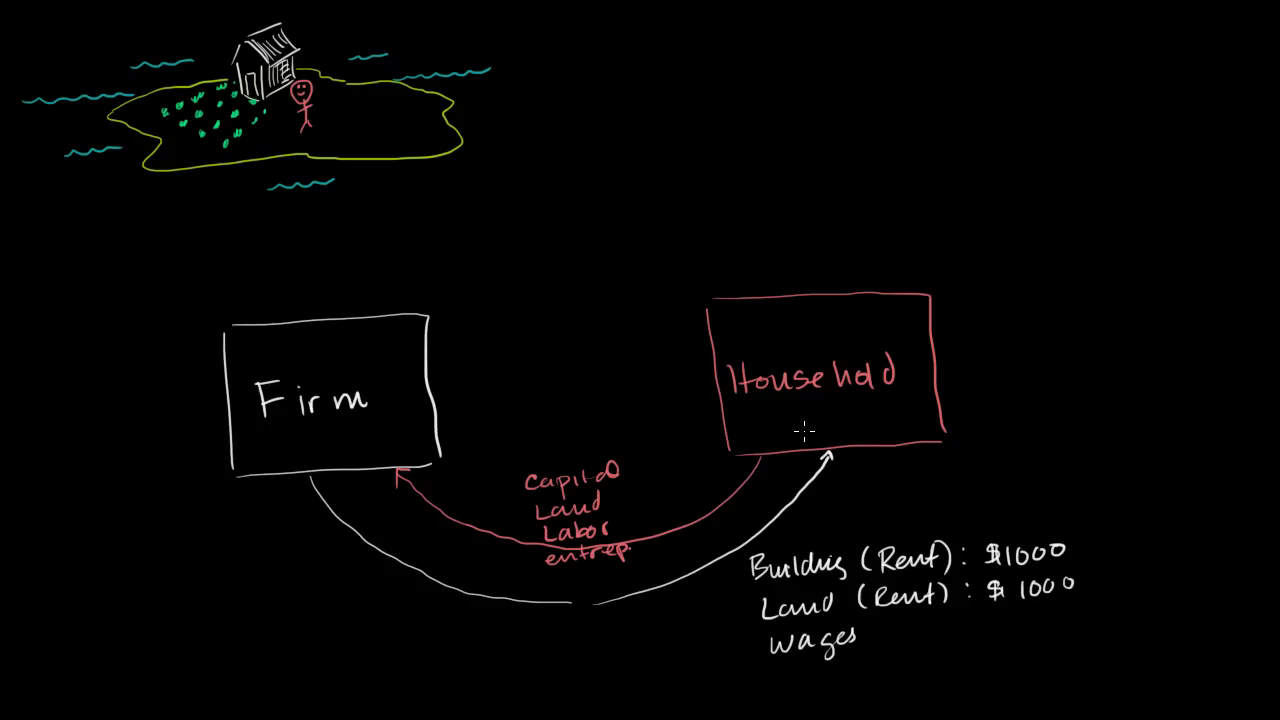 Firm
Household
Capital
Land
Labor
entrep.
Building (Rent): $1000
Land (Rent): $1000
wages